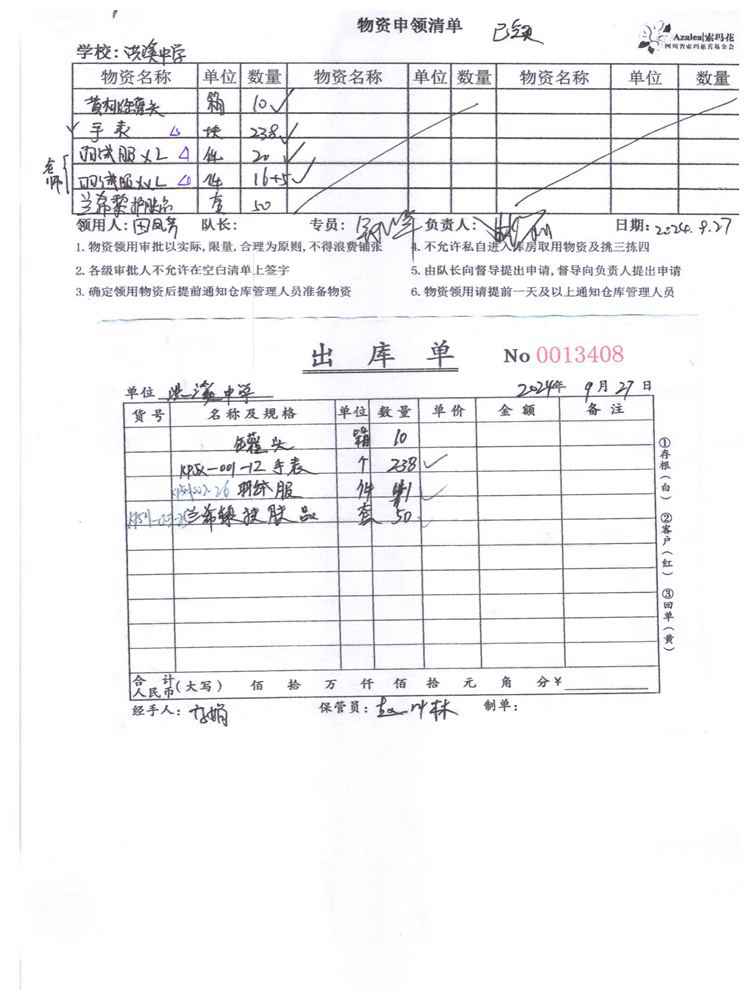 物资申领清单 已领
Azalea|索玛花
四川省索玛慈善基金会
学校：洪溪中学
物资名称 单位 数量 物资名称 单位 数量 物资名称 单位 数量
箱 10
手表 块 238
老师
XL 件 20
XXL 件 16+5
兰希黎护肤品 套 50
领用人： 队长： 专员： 负责人： 日期：2024.9.27
1. 物资领用审批以实际，限量，合理为原则，不得浪费铺张 4. 不允许私自进入库房取用物资及挑三拣四
2. 各级审批人不允许在空白清单上签字 5. 由队长向督导提出申请，督导向负责人提出申请
3. 确定领用物资后提前通知仓库管理人员准备物资 6. 物资领用请提前一天及以上通知仓库管理人员
出库单 No 0013408
单位 洪溪中学 2024年 9月27日
货号 名称及规格 单位 数量 单价 金额 备注
罐头 箱 10
-001-12 手表 个 238
服 件
兰希黎护肤品 套 50
①存根（白） ②客户（红） ③回单（黄）
合计人民币（大写） 佰 拾 万 仟 佰 拾 元 角 分 ¥
经手人： 保管员： 制单：